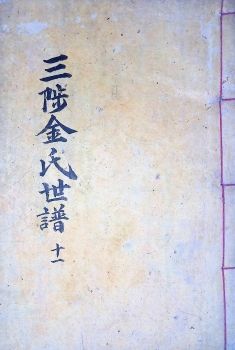 三陟金氏世譜 十一